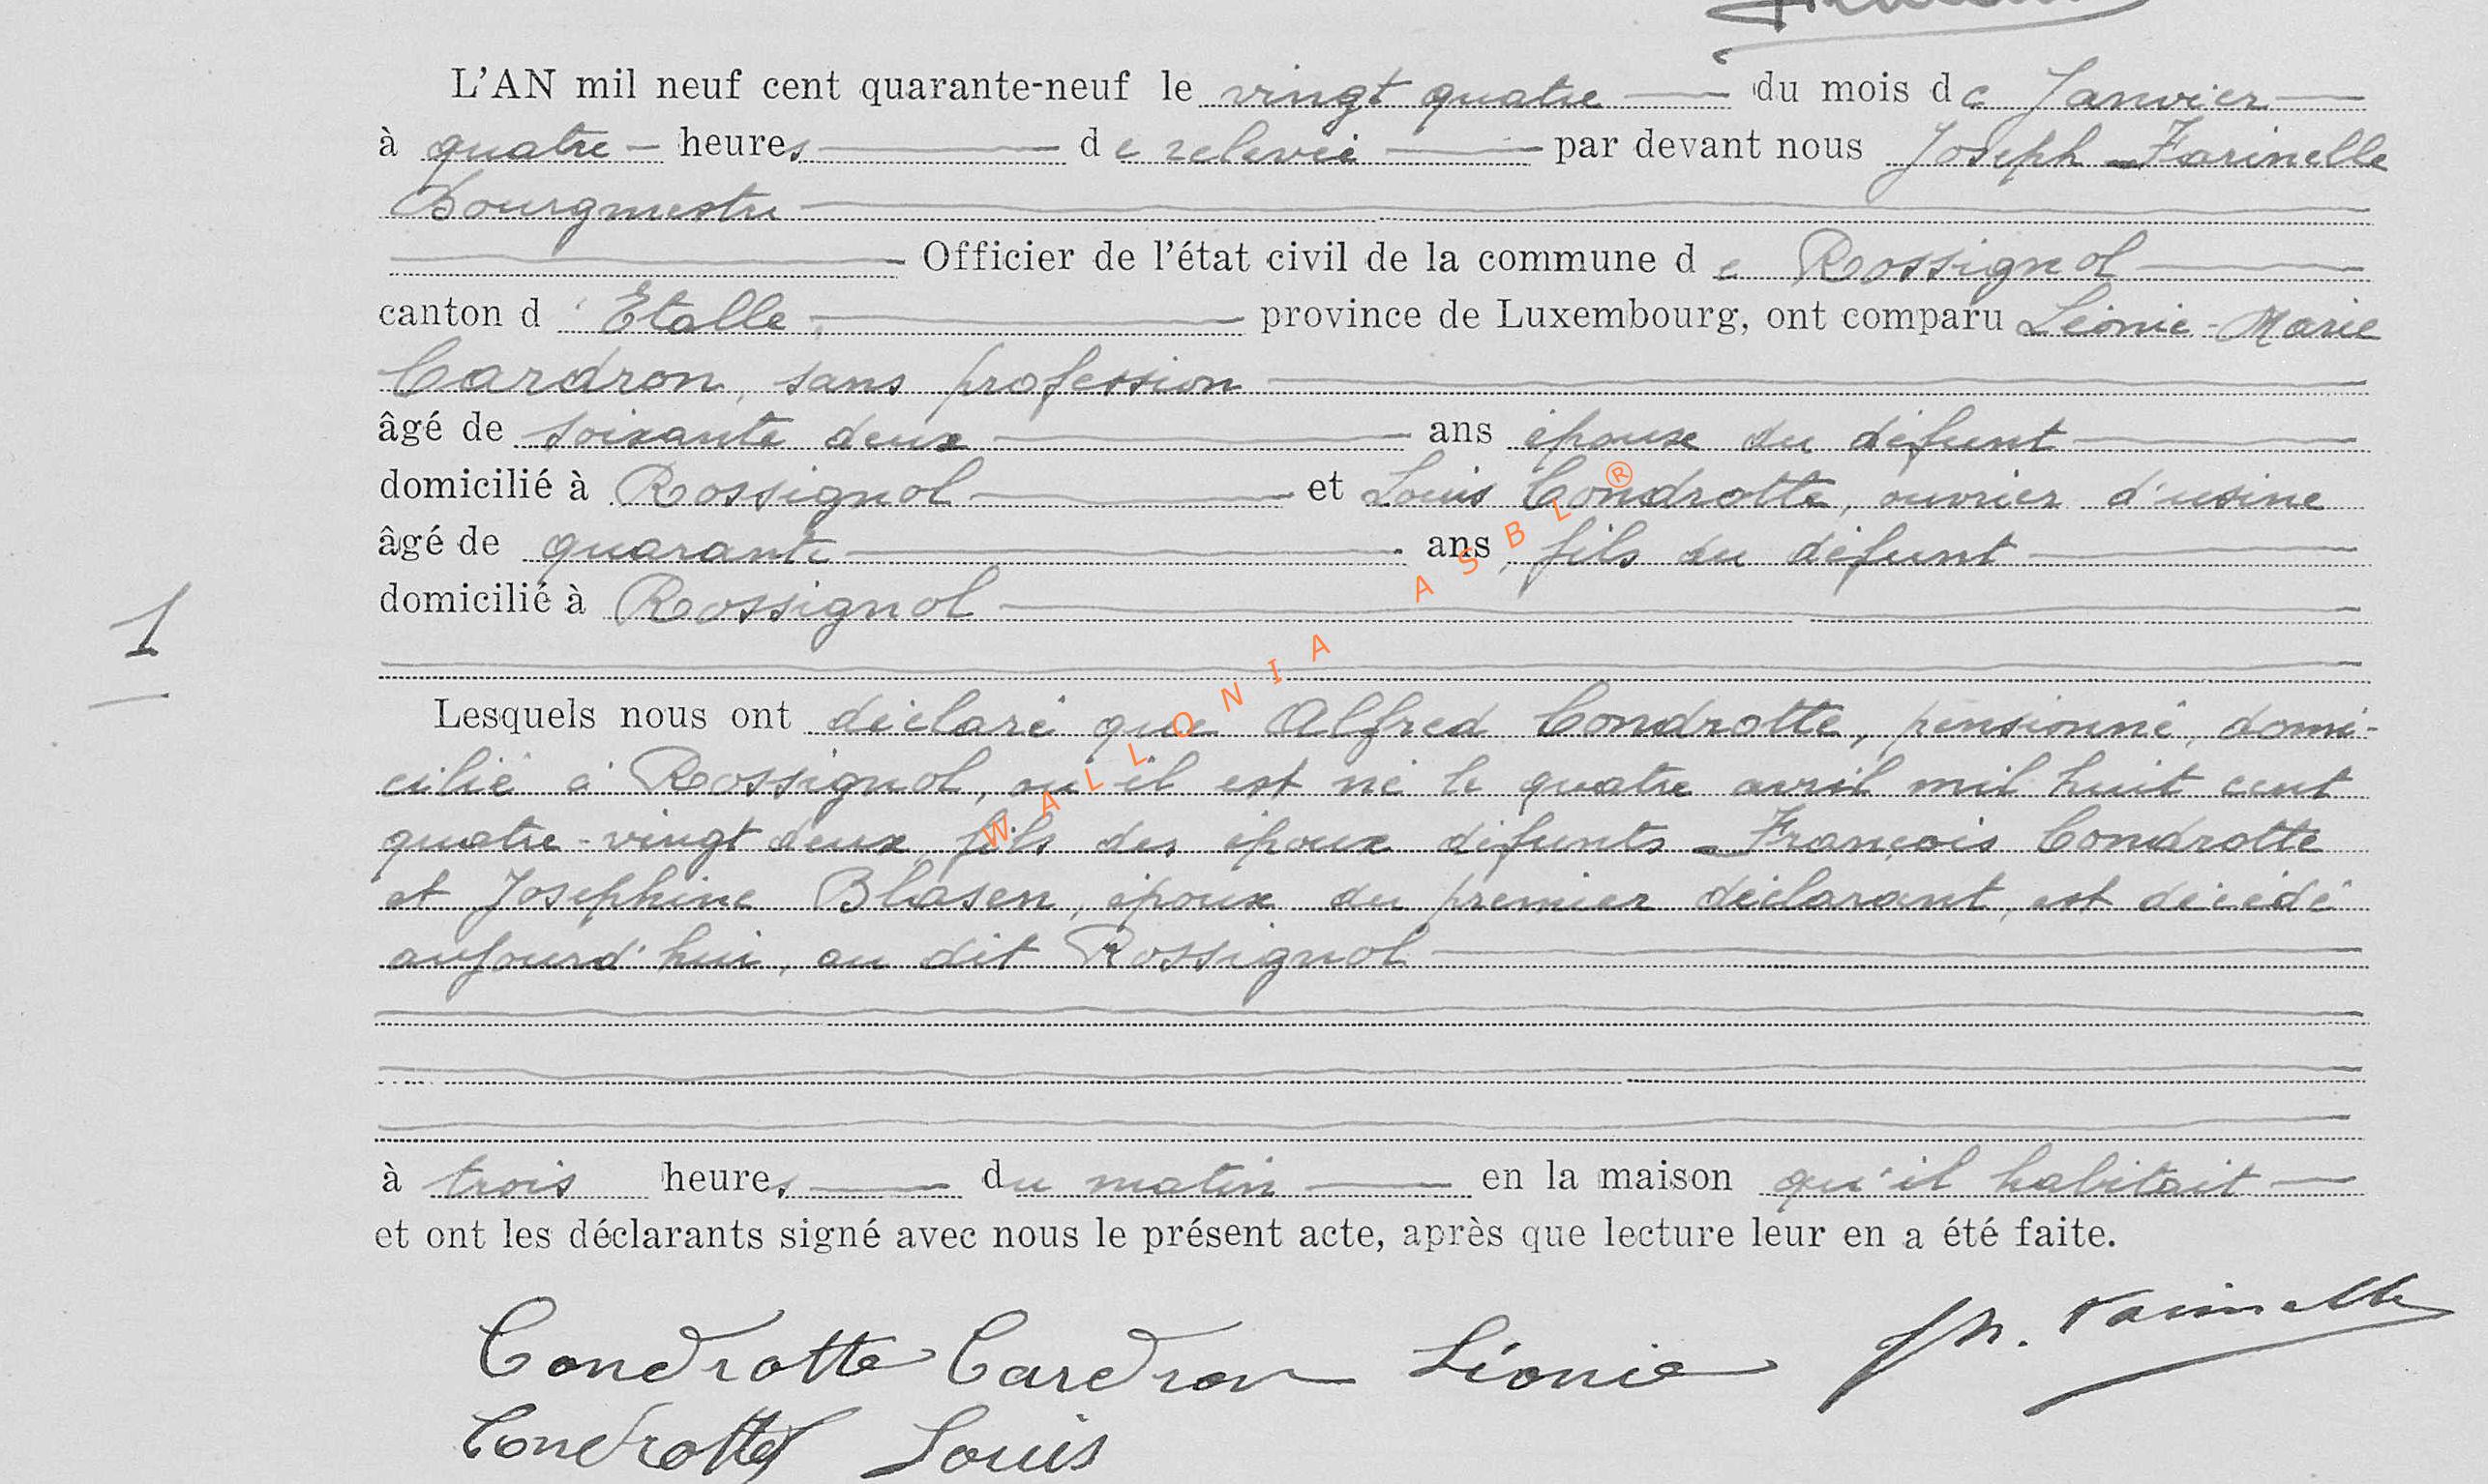 L'AN mil neuf cent quarante-neuf le vingt quatre du mois de Janvier
à quatre heures de relevée par devant nous Joseph Farinelle
Bourgmestre
Officier de l'état civil de la commune de Rossignol
canton d'Etalle province de Luxembourg, ont comparu Léonie-Marie
Cardron, sans profession
âgé de soixante deux ans épouse du défunt
domicilié à Rossignol et Louis Condrotte, ouvrier d'usine
âgé de quarante ans, fils du défunt
domicilié à Rossignol
1
Lesquels nous ont déclaré que Alfred Condrotte, pensionné, domi-
cilié à Rossignol, où il est né le quatre avril mil huit cent
quatre-vingt deux, fils des époux défunts François Condrotte
et Joséphine Blasen, époux du premier déclarant, est décédé
aujourd'hui, au dit Rossignol
à trois heures du matin en la maison qu'il habitait
et ont les déclarants signé avec nous le présent acte, après que lecture leur en a été faite.
Condrotte Cardron Léonie Jh. Farinelle
Condrotte Louis
WALLONIA ASBL ®